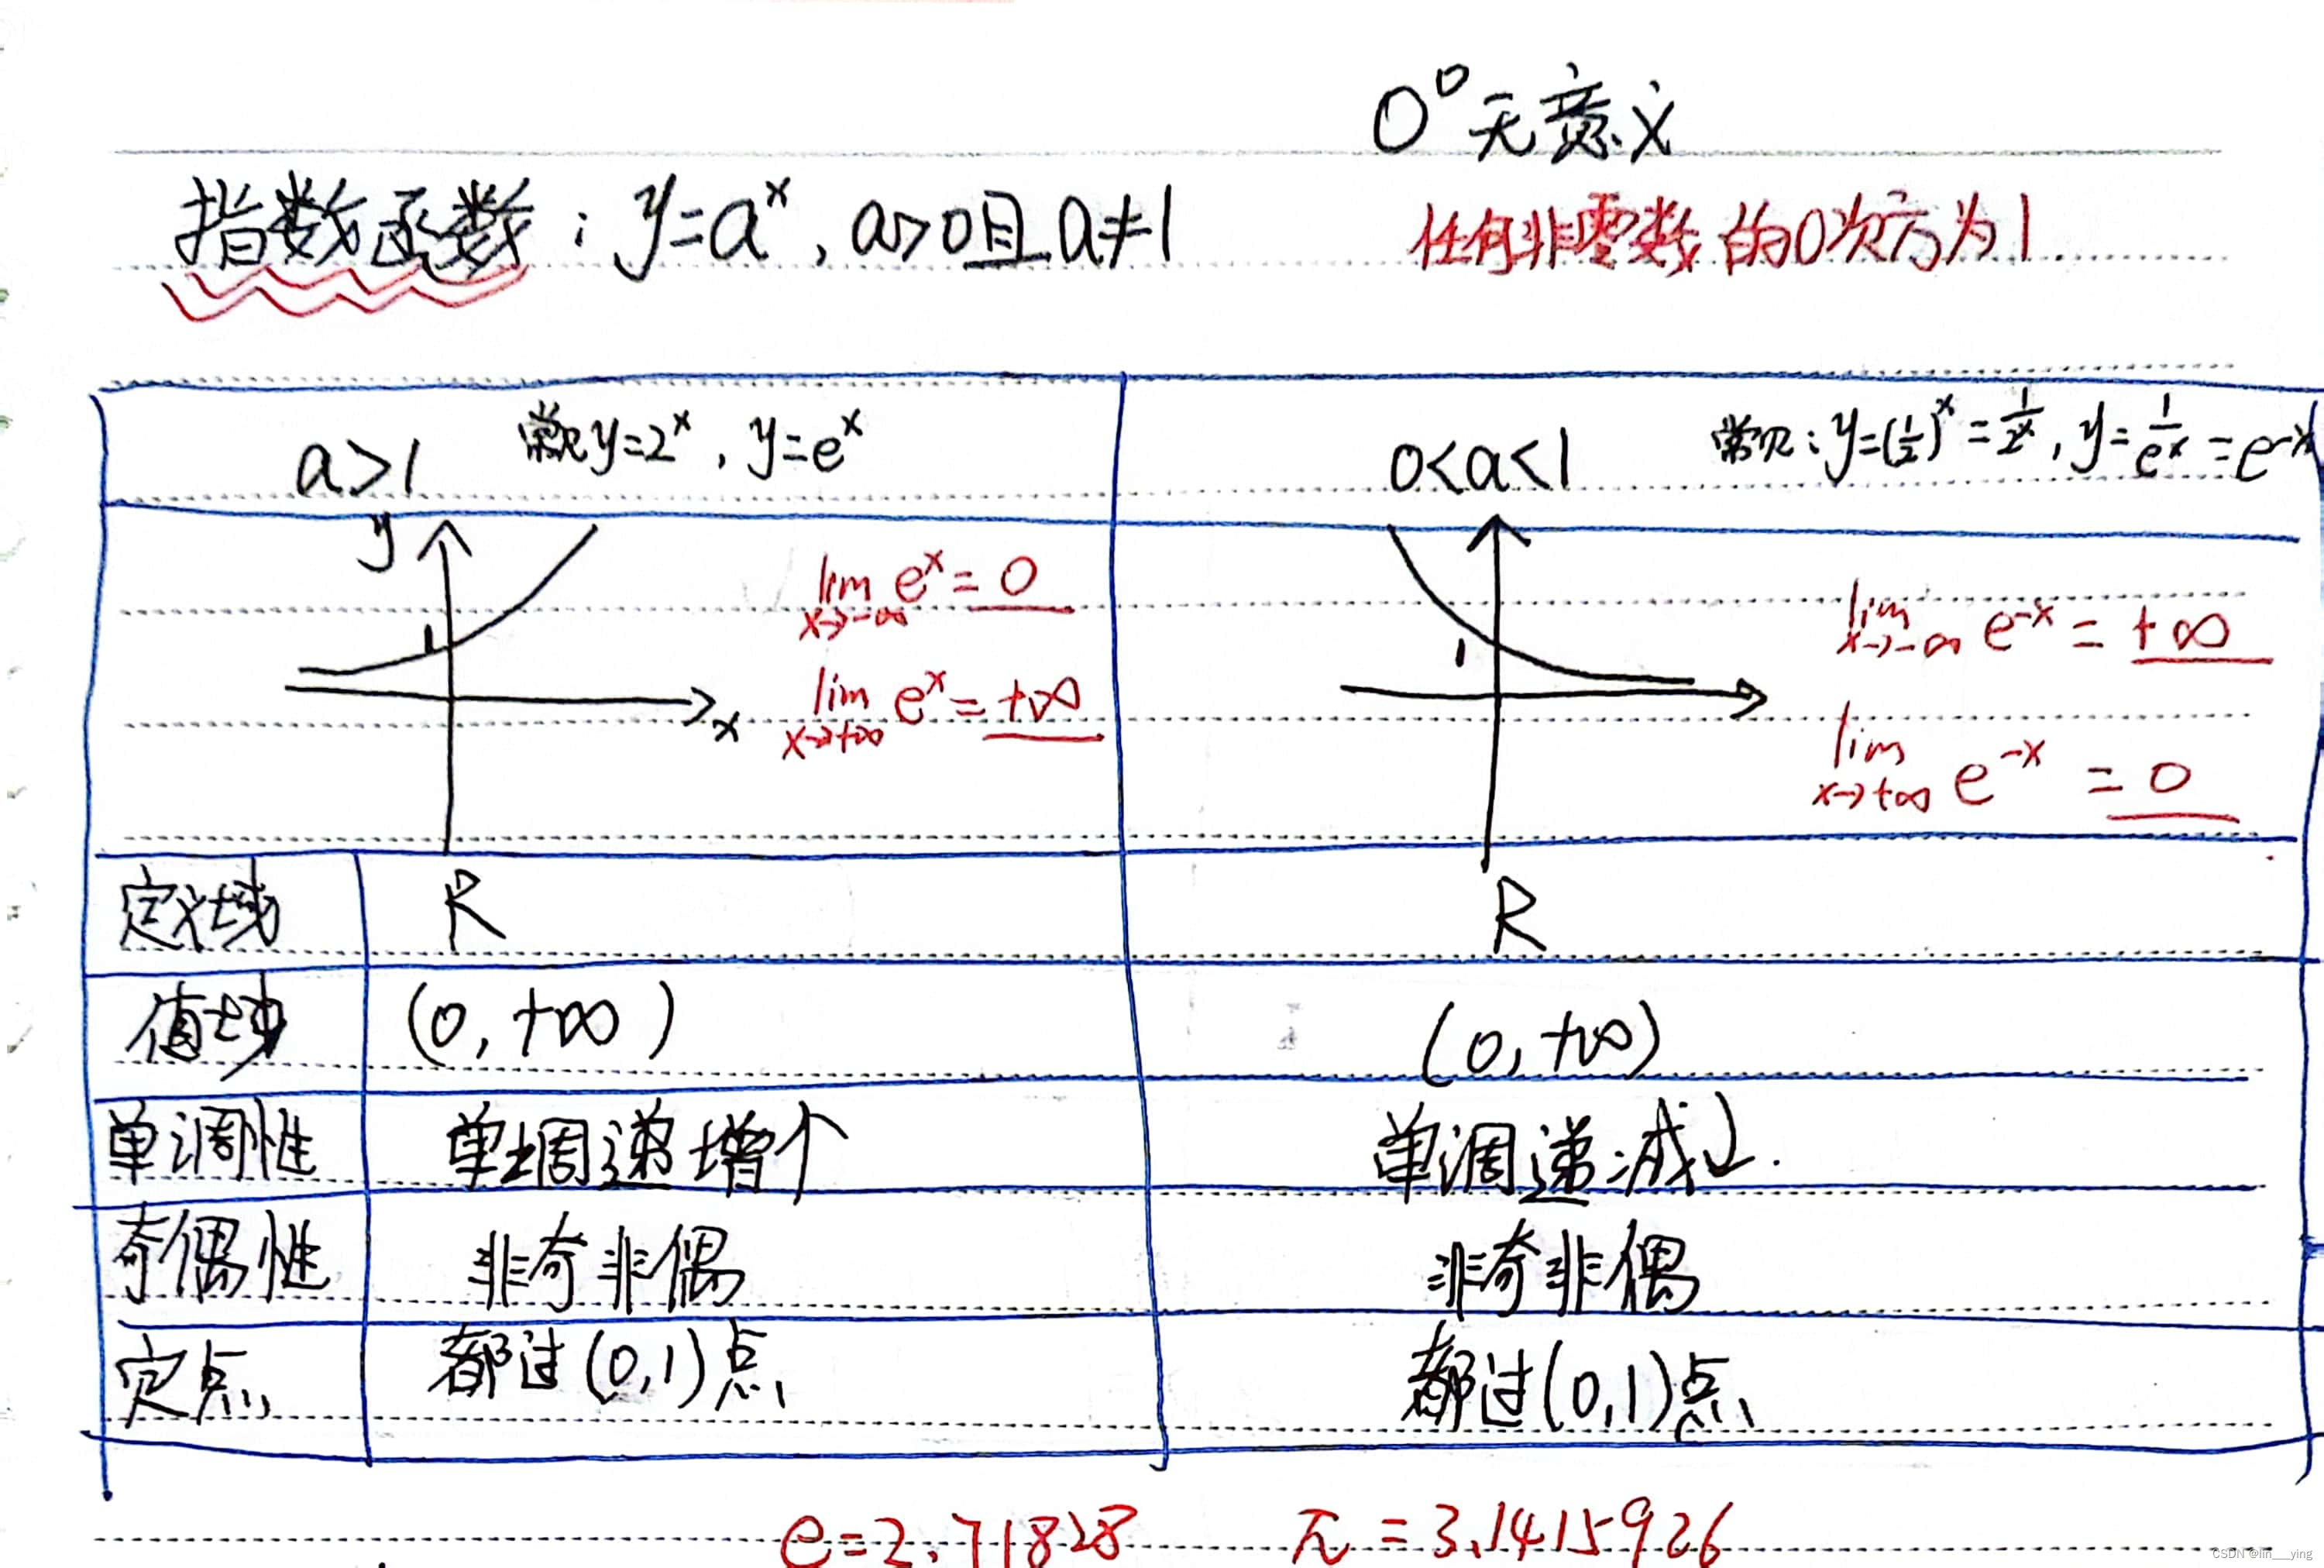 0⁰无意义
指数函数：y=aˣ，a>0且a≠1
任何非零数的0次方为1
a>1 常见y=2ˣ，y=eˣ
0<a<1 常见：y=(1/2)ˣ=1/2ˣ，y=1/eˣ=e⁻ˣ
y
1
x
lim x→-∞ eˣ=0
lim x→+∞ eˣ=+∞
1
lim x→-∞ e⁻ˣ=+∞
lim x→+∞ e⁻ˣ=0
定义域 R R
值域 (0,+∞) (0,+∞)
单调性 单调递增↑ 单调递减↓.
奇偶性 非奇非偶 非奇非偶
定点 都过(0,1)点 都过(0,1)点
e=2.71828 π=3.1415926
CSDN @lin___ying